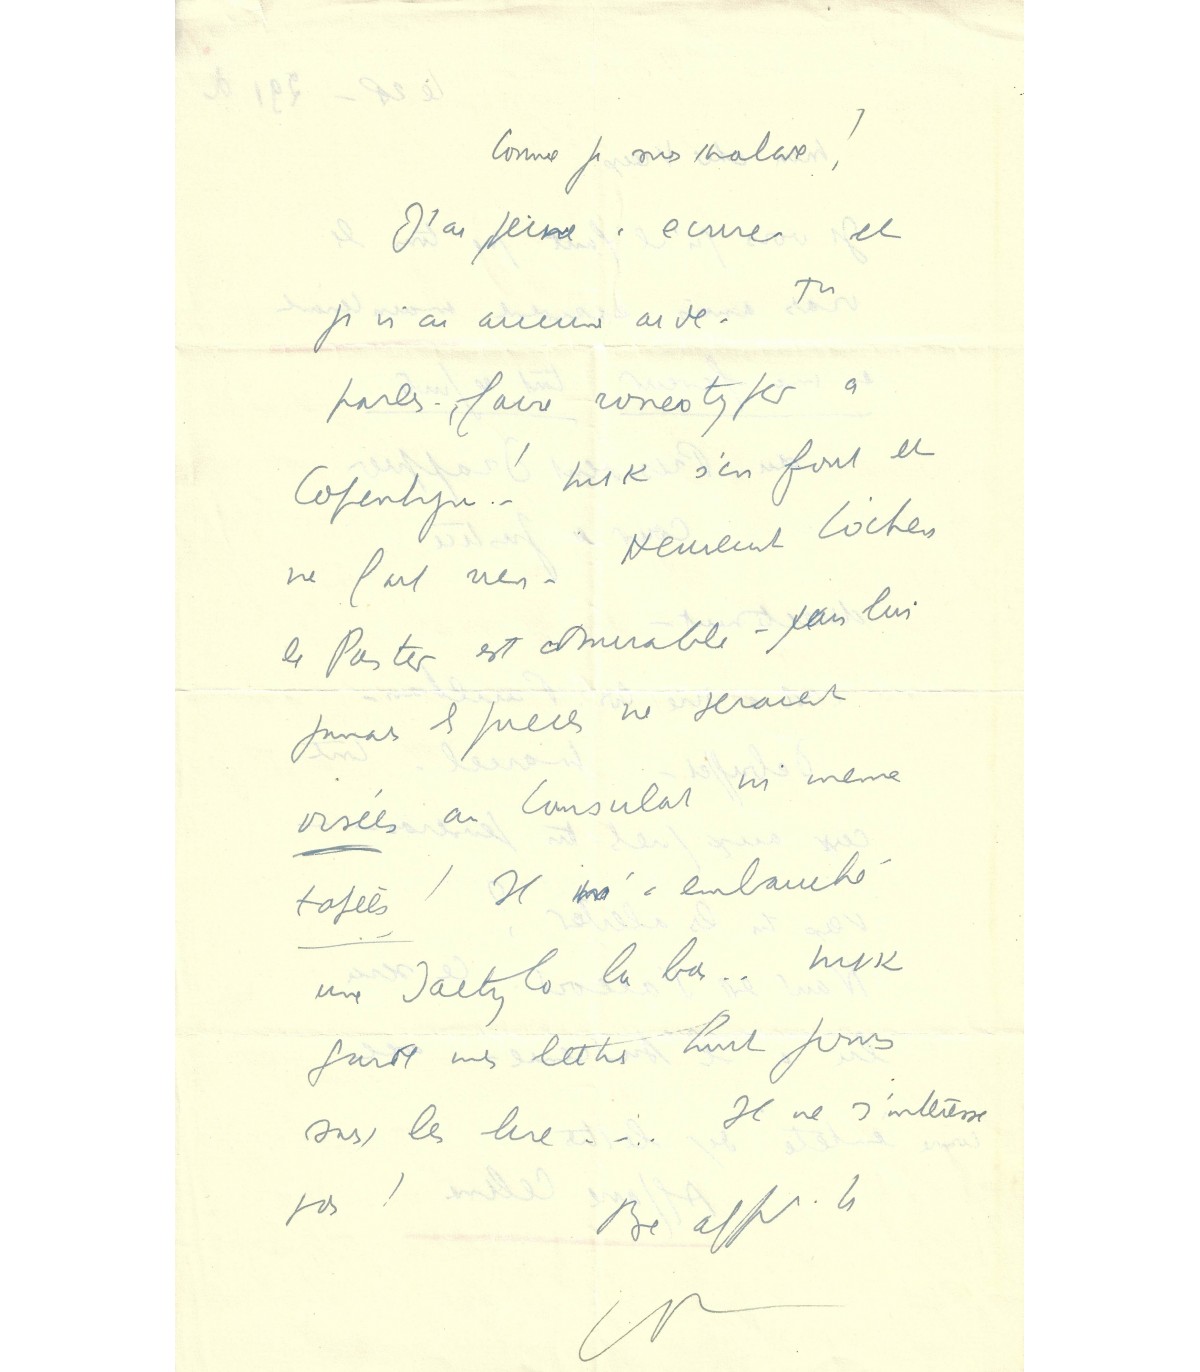 Comme je suis malade !
J'ai peine à écrire et
je n'ai aucune aide - Tu
parles - faire roneotyper à
Copenhague ! - Mik s'en fout et
ne fait rien - Heureusement Löchen
le Pasteur est admirable - sans lui
jamais les pièces ne seraient
visées au Consulat ni même
tapées ! Il m'a embauché
une Dactylo là bas .. Mik
garde mes lettres huit jours
sans les lire - ... Il ne s'intéresse
pas !
Bien affect. à